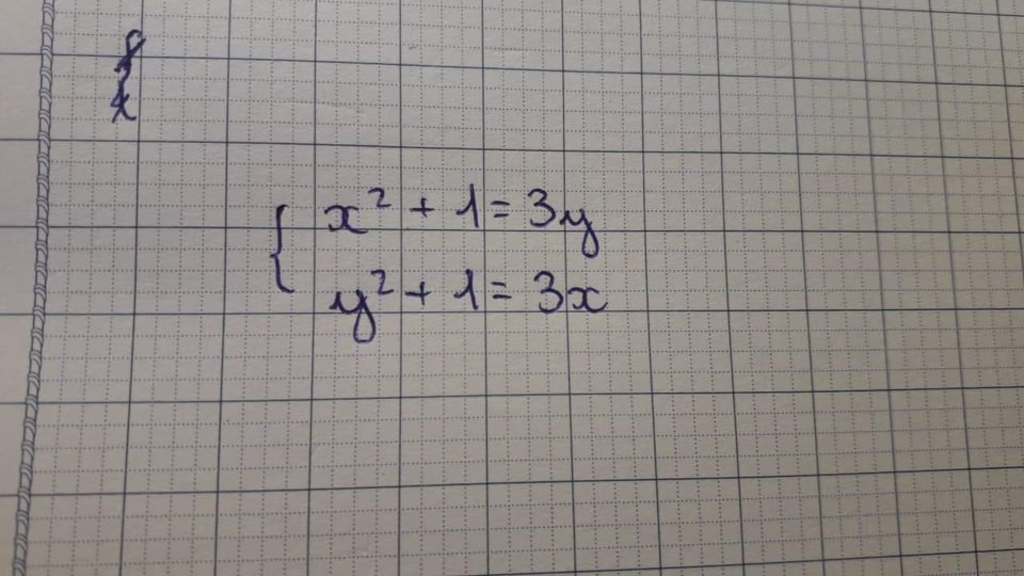 x² + 1 = 3y
y² + 1 = 3x